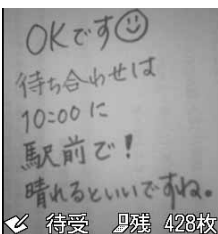 OKです☺
待ち合わせは
10:00に
駅前で!
晴れるといいですね。
待受 残 428枚